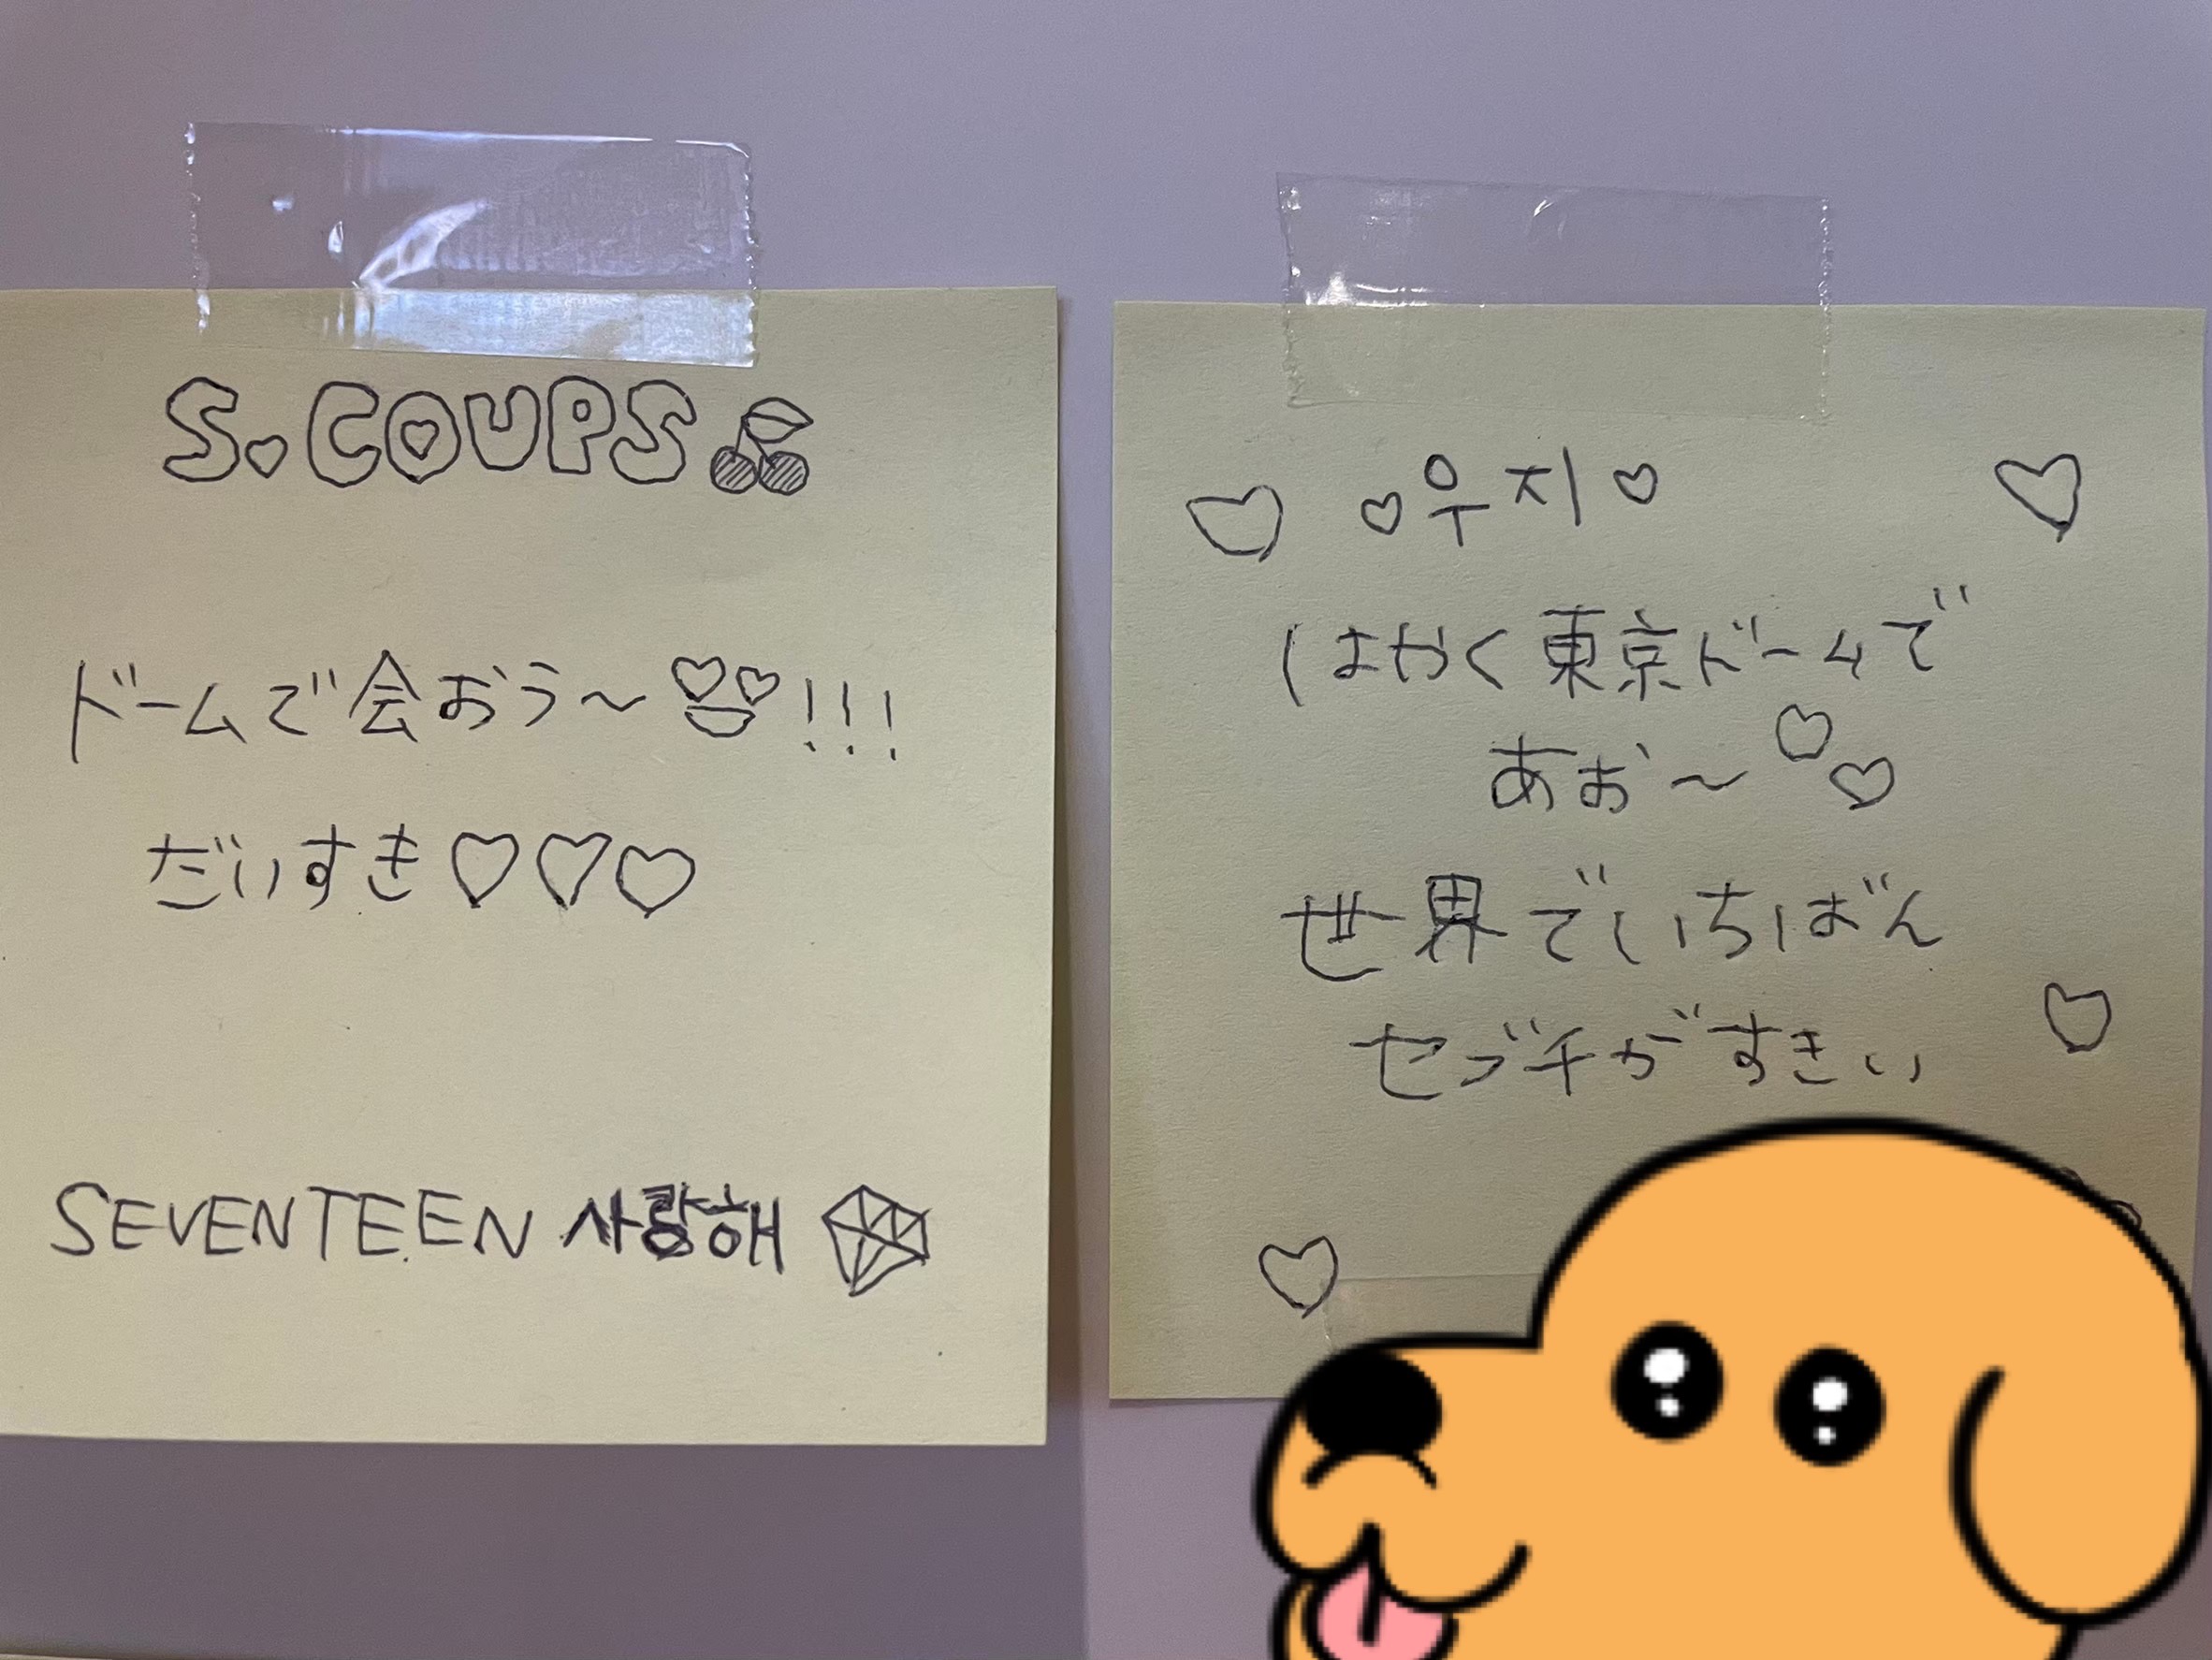 S.COUPS
ドームで会おう〜!!!
だいすき♡♡♡
SEVENTEEN 사랑해
♡ ♡우지♡ ♡
はやく東京ドームで
あお〜♡♡
世界でいちばん
セブチがすきぃ